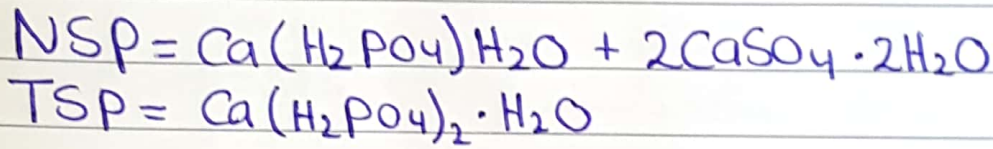 NSP = Ca(H₂PO₄)H₂O + 2CaSO₄·2H₂O
TSP = Ca(H₂PO₄)₂·H₂O